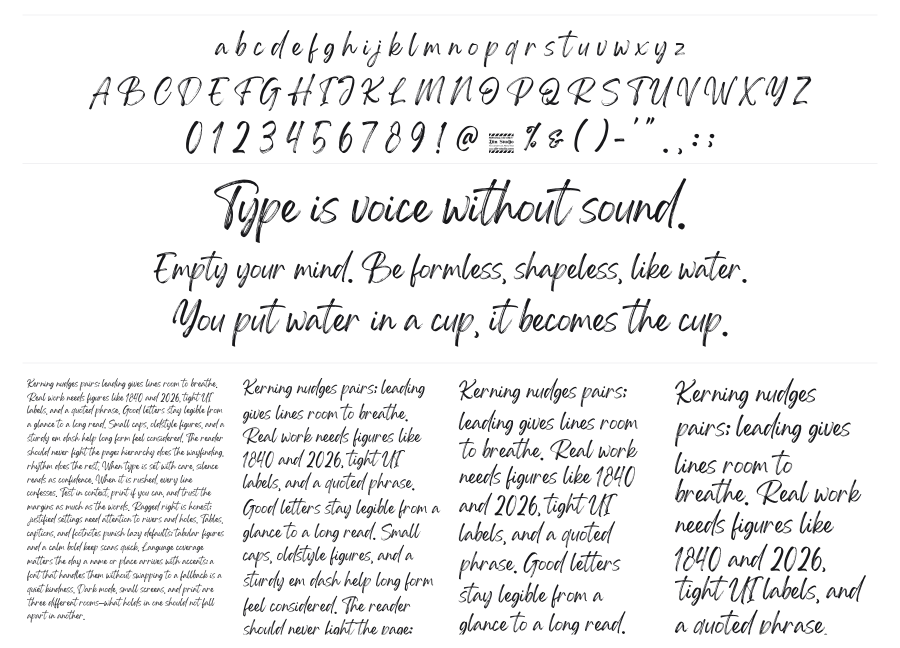 a b c d e f g h i j k l m n o p q r s t u v w x y z
A B C D E F G H I J K L M N O P Q R S T U V W X Y Z
0 1 2 3 4 5 6 7 8 9 ! @ % & ( ) - ' " . , : ;
Type is voice without sound.
Empty your mind. Be formless, shapeless, like water.
You put water in a cup, it becomes the cup.
Kerning nudges pairs: leading gives lines room to breathe.
Real work needs figures like 1840 and 2026, tight UI
labels, and a quoted phrase. Good letters stay legible from
a glance to a long read. Small caps, oldstyle figures, and a
sturdy em dash help long form feel considered. The reader
should never fight the page: hierarchy does the wayfinding,
rhythm does the rest. When type is set with care, silence
reads as confidence. When it is rushed, every line
confesses. Test in context, print if you can, and trust the
margins as much as the words. Ragged right is honest;
justified settings need attention to rivers and holes. Tables,
captions, and footnotes punish lazy defaults: tabular figures
and a calm bold keep scans quick. Language coverage
matters the day a name or place arrives with accents: a
font that handles them without swapping to a fallback is a
quiet kindness. Dark mode, small screens, and print are
three different rooms—what holds in one should not fall
apart in another.
Kerning nudges pairs: leading
gives lines room to breathe.
Real work needs figures like
1840 and 2026, tight UI
labels, and a quoted phrase.
Good letters stay legible from a
glance to a long read. Small
caps, oldstyle figures, and a
sturdy em dash help long form
feel considered. The reader
should never fight the page:
Kerning nudges pairs:
leading gives lines room
to breathe. Real work
needs figures like 1840
and 2026, tight UI
labels, and a quoted
phrase. Good letters
stay legible from a
glance to a long read.
Kerning nudges
pairs: leading gives
lines room to
breathe. Real work
needs figures like
1840 and 2026,
tight UI labels, and
a quoted phrase.